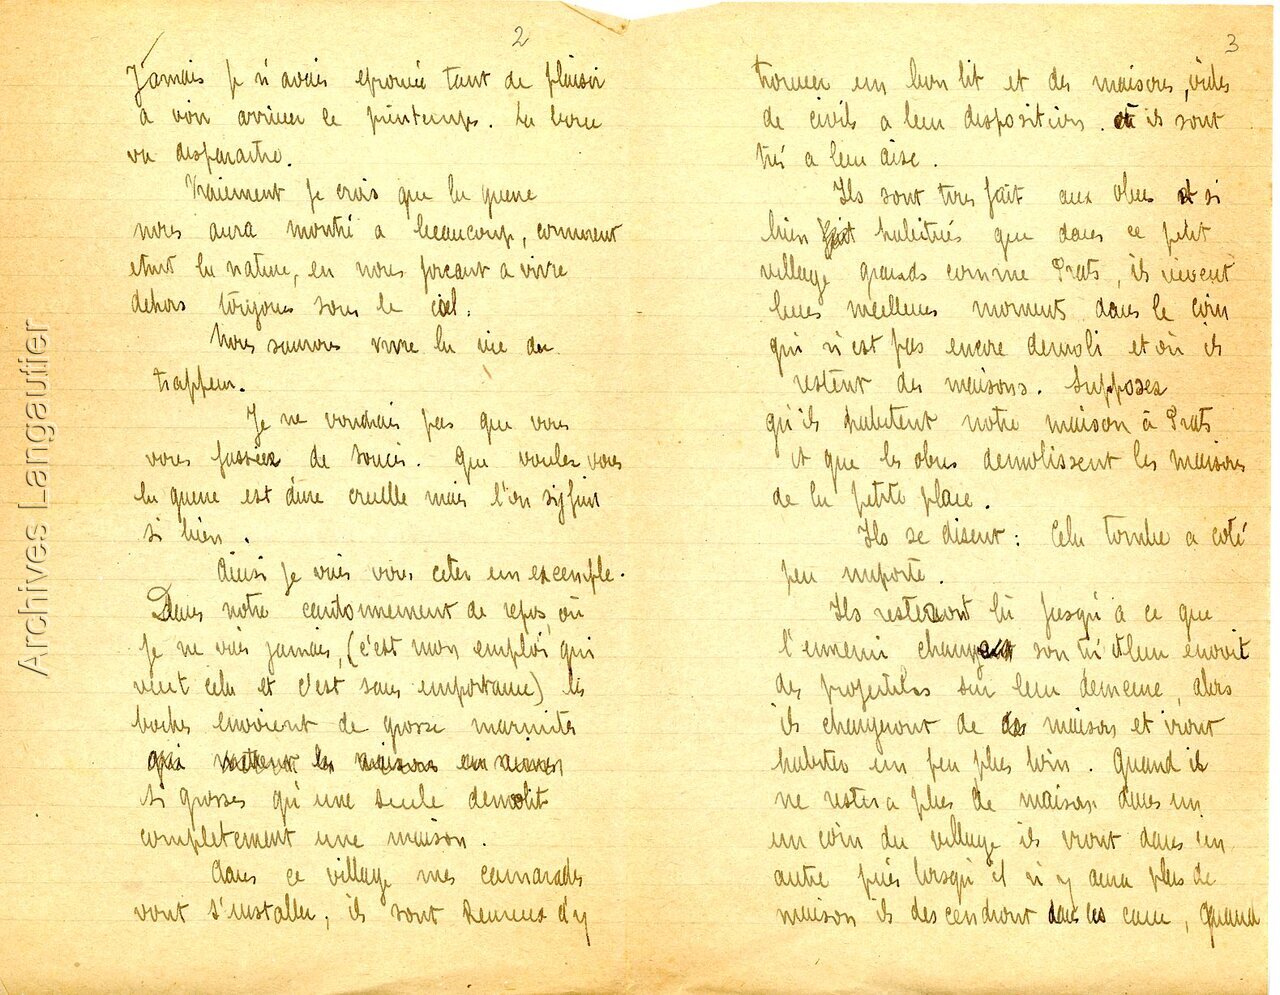 2
Jamais je n'avais eprouvé tant de plaisir
a voir arriver le printemps. La boue
va disparaitre.
Vraiement je crois que la guerre
nous aura montré a beaucoup, comment
etait la nature, en nous forcant a vivre
dehors toujours sous le ciel.
Nous saurons vivre la vie du
trappeur.
Je ne voudrais pas que vous
vous fassiez de soucis. Que voulez vous
la guerre est dure cruelle mais l'on s'y fait
si bien.
Ainsi je vais vous citer un excemple.
Dans notre cantonnement de repos, où
je ne vais jamais, (c'est mon emploi qui
veut cela et c'est sans importance) les
boches envoient de grosse marmites
qui mettent les maisons en ruines
si grosses qu'une seule demolit
completement une maison.
dans ce village mes camarades
vont s'installer, ils sont heureux d'y
3
trouver un bon lit et des maisons, vides
de civils a leur disposition. où ils sont
tres a leur aise.
Ils sont tres fait aux obus et si
bien habitués que dans ce petit
village grands comme Prats, ils vivent
leurs meilleurs moments dans le coin
qui n'est pas encore demoli et où ils
restent des maisons. Supposez
qu'ils habitent notre maison à Prats
et que les obus demolissent les maisons
de la petite place.
Ils se disent : Cela tombe a coté
peu importe.
Ils resteront là jusqu'à ce que
l'ennemi change son tir et leur envoit
des projectiles sur leur demeure, alors
ils changeront de maison et iront
habiter un peu plus loin. Quand il
ne restera plus de maison dans un
un coin du village ils iront dans un
autre puis lorsqu'il n'y aura plus de
maison ils descendront dans les cave, quand
Archives Langautier